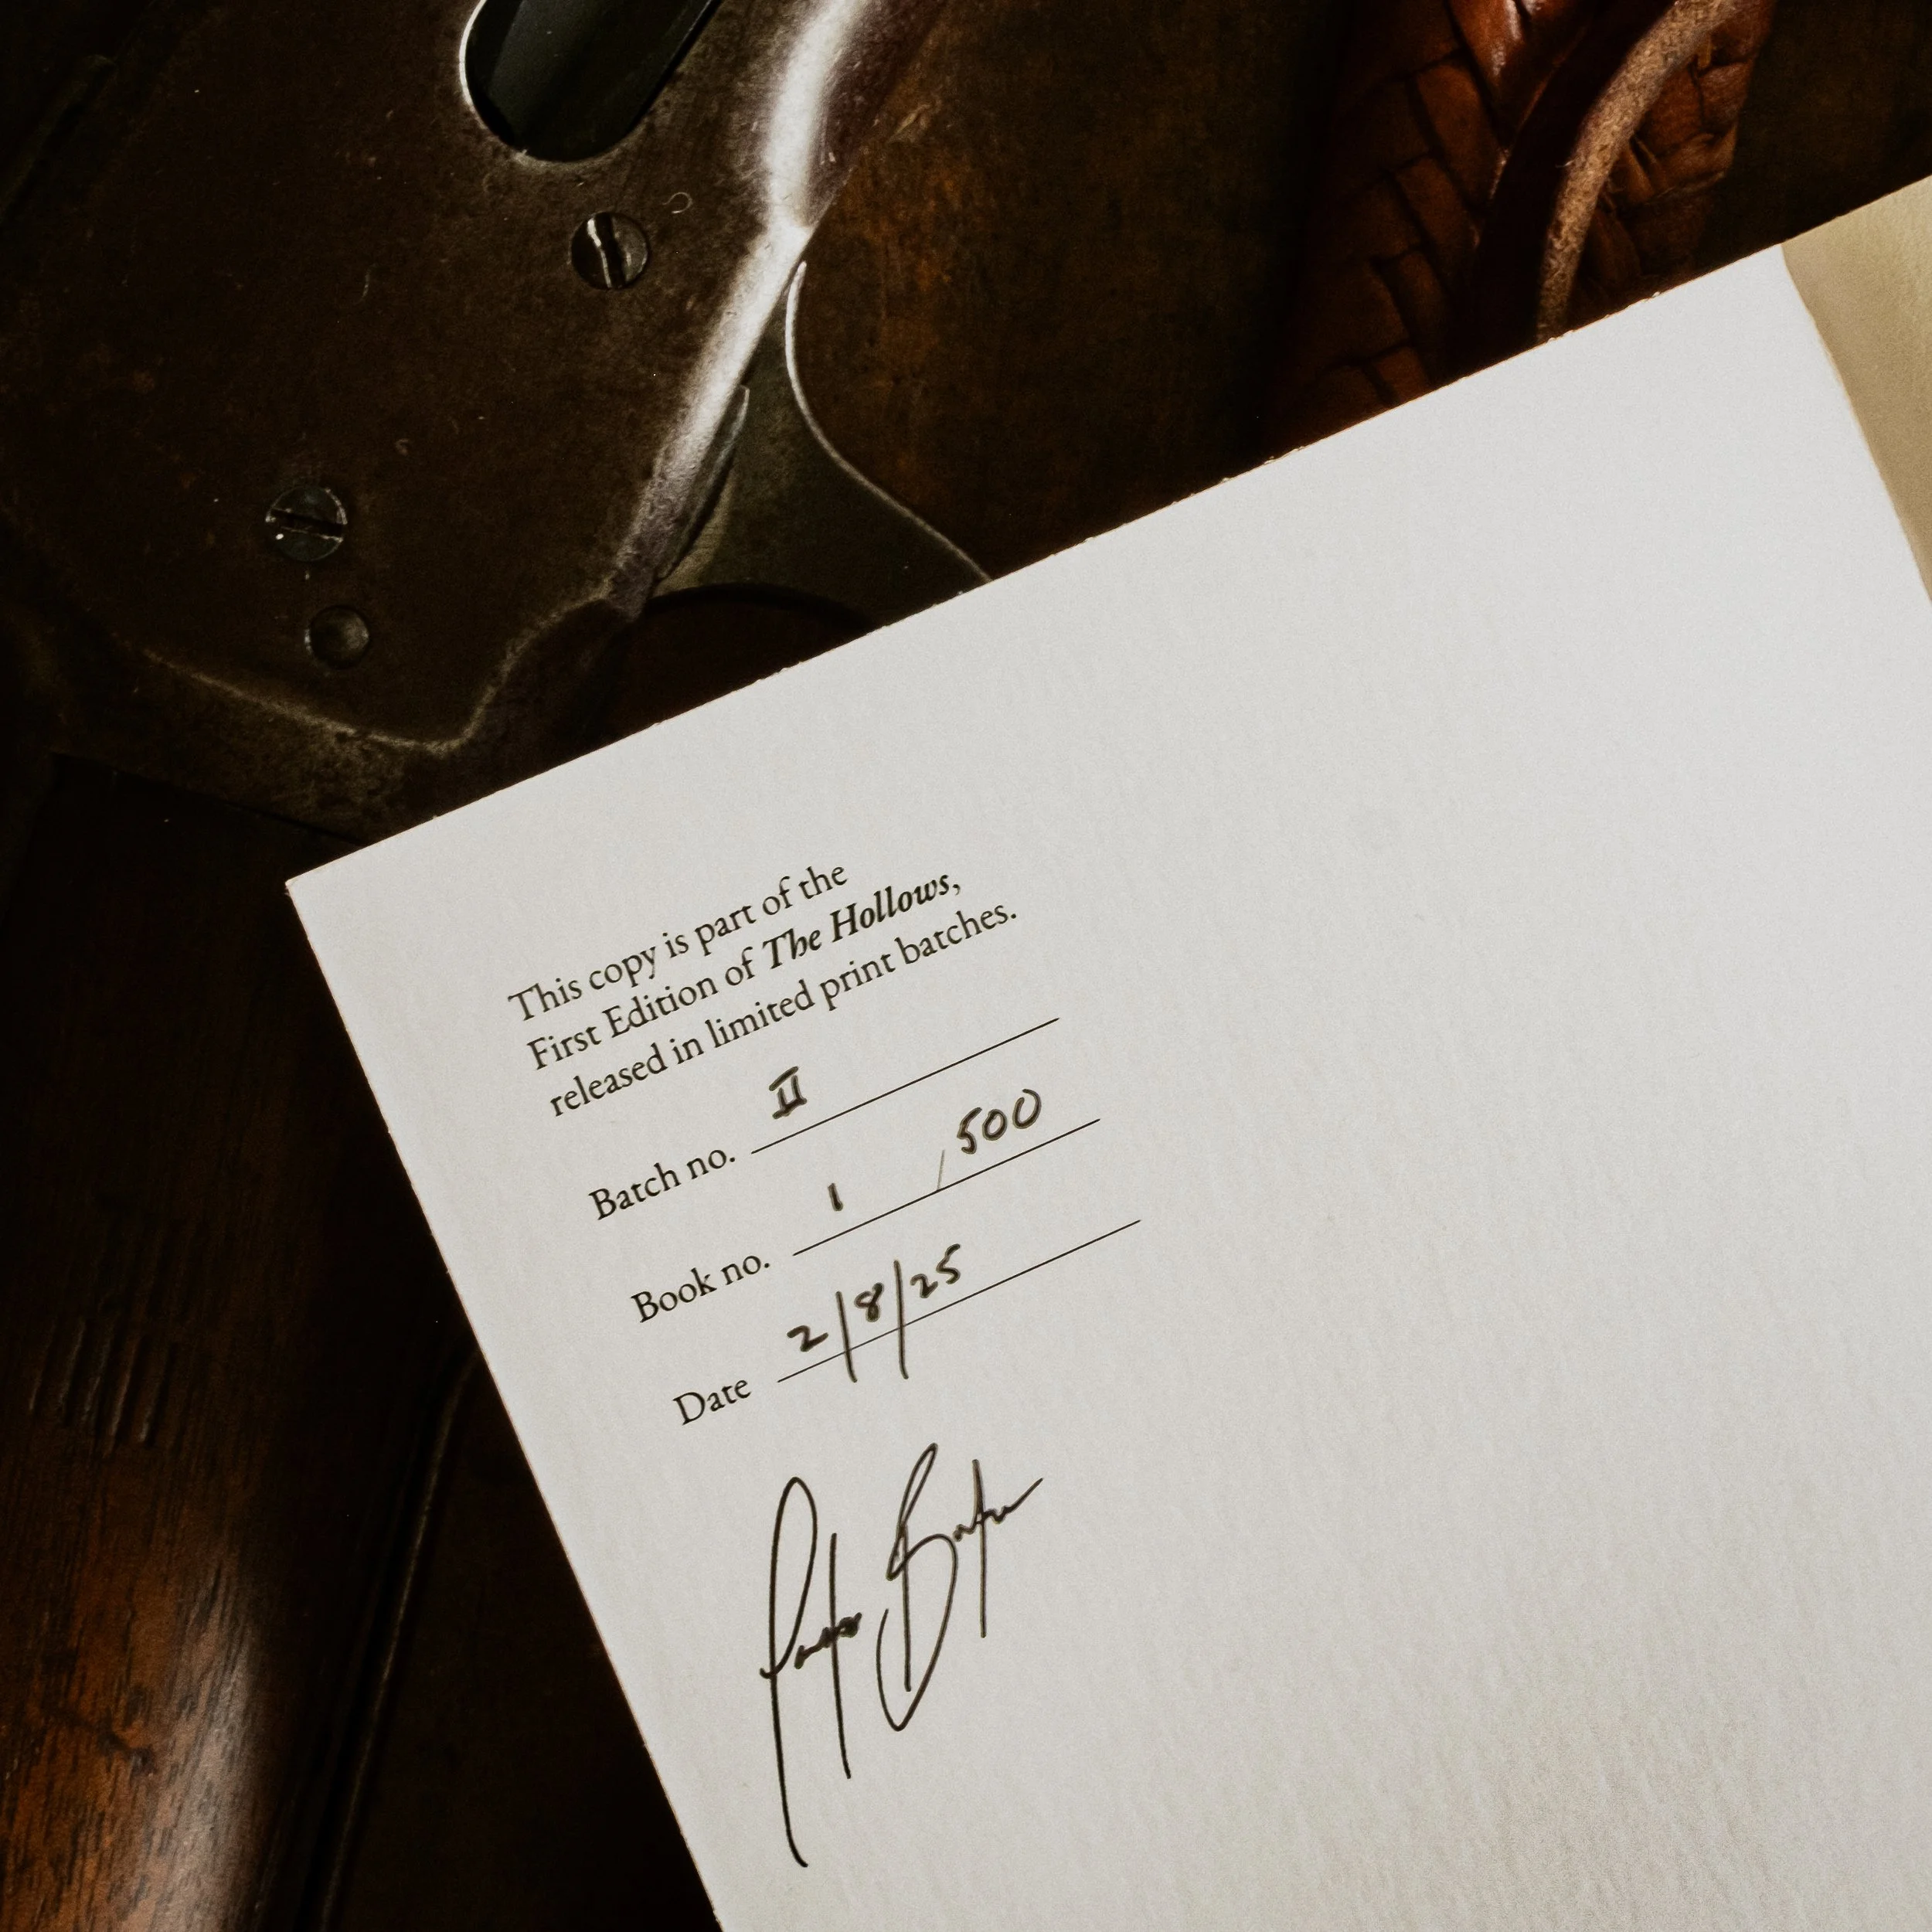 This copy is part of the
First Edition of The Hollows,
released in limited print batches.
Batch no. II
Book no. 1 / 500
Date 2/8/25